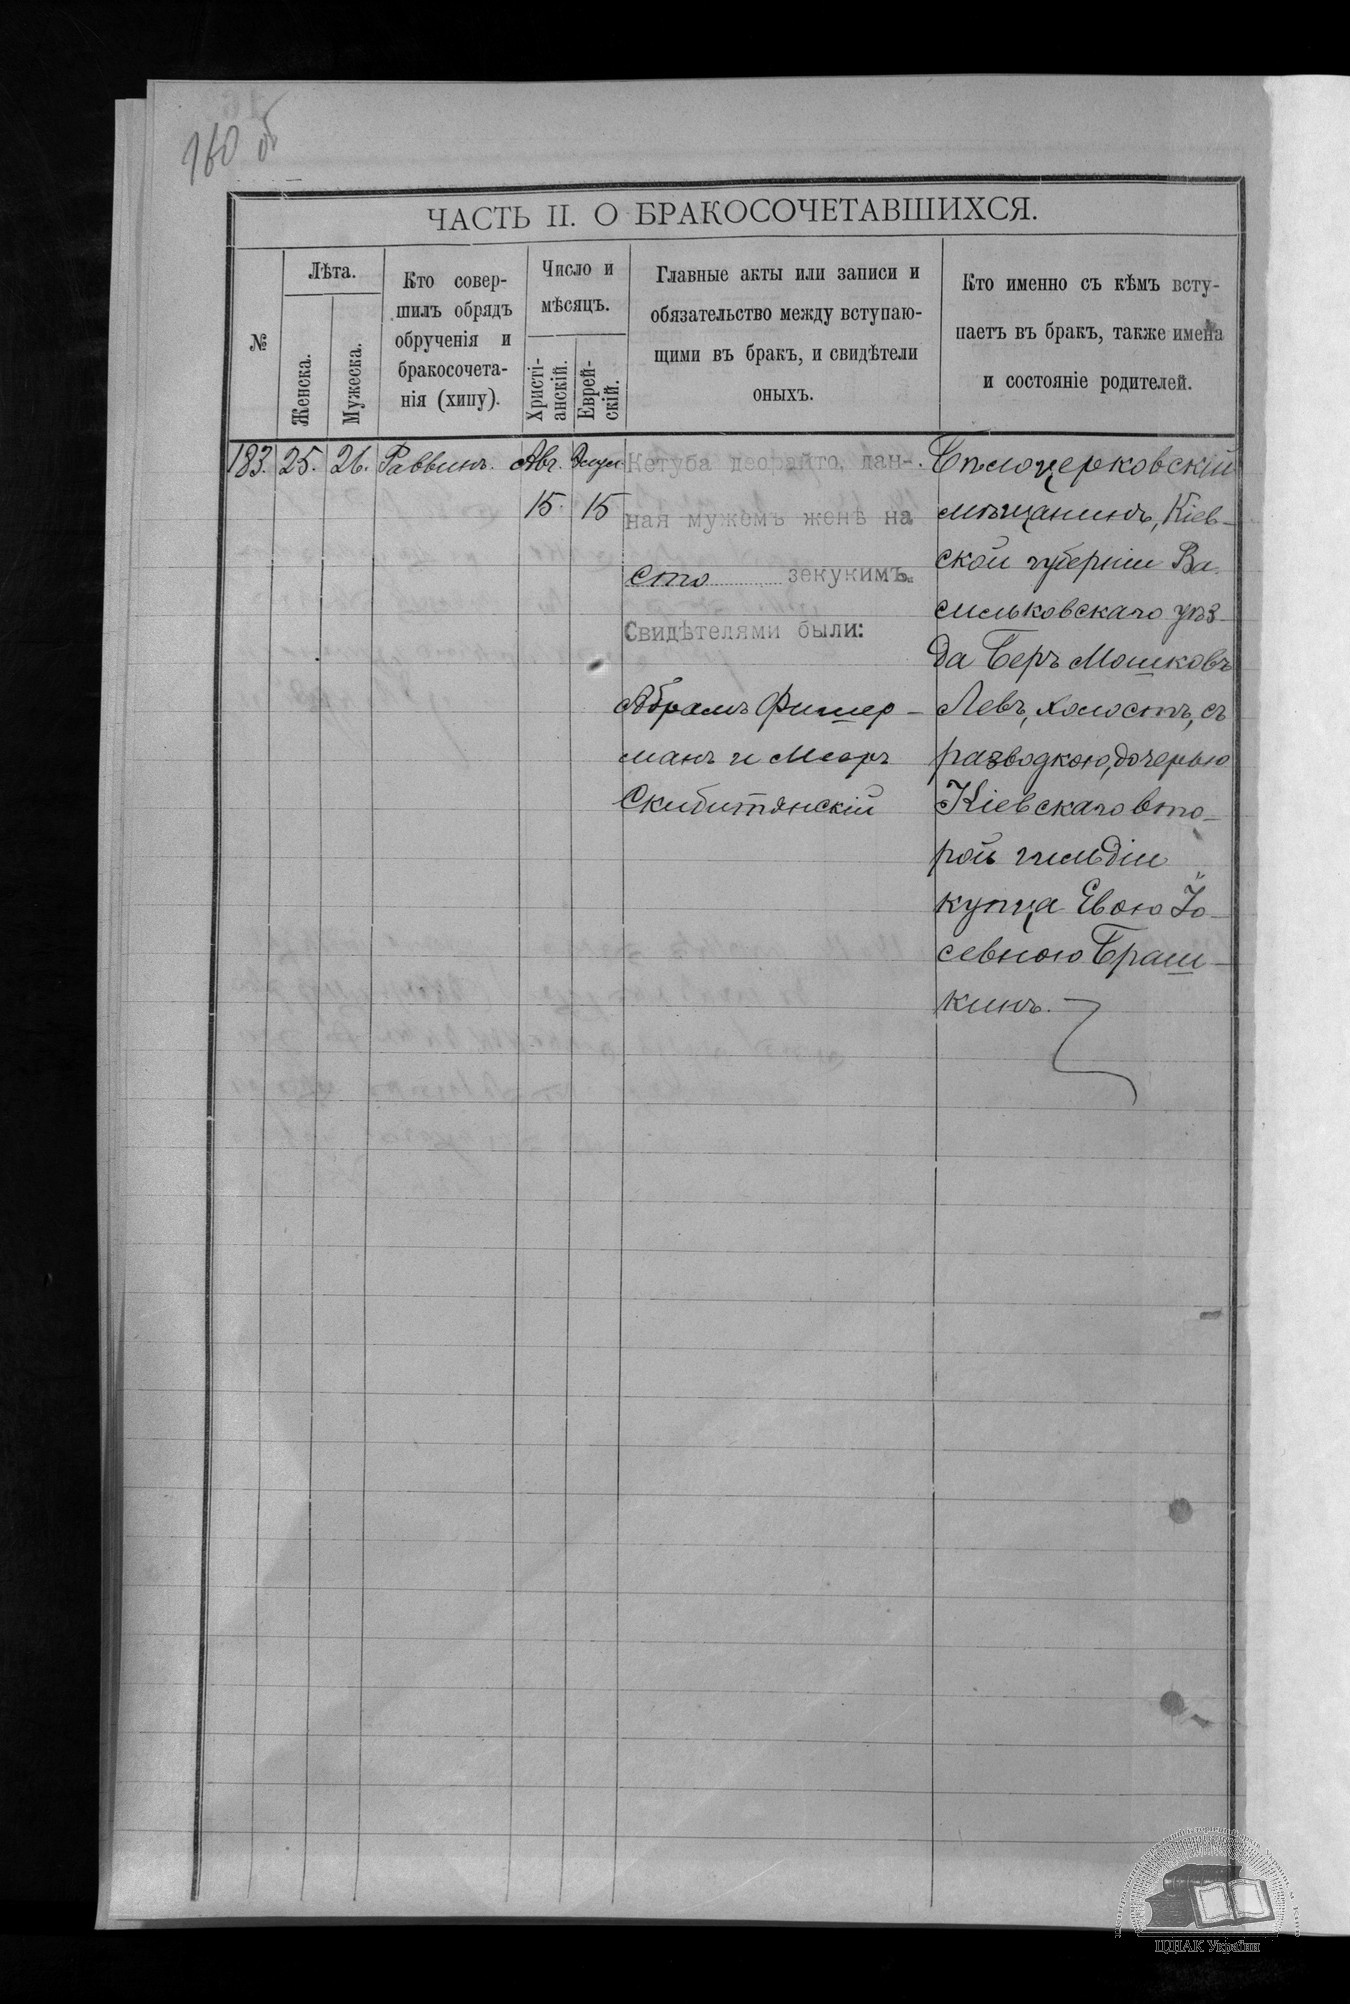 160 об
ЧАСТЬ II. О БРАКОСОЧЕТАВШИХСЯ.
№
Лѣта.
Женска.
Мужеска.
Кто совер-
шилъ обрядъ
обрученія и
бракосочета-
нія (хипу).
Число и
мѣсяцъ.
Христі-
анскій.
Еврей-
скій.
Главные акты или записи и
обязательство между вступаю-
щими въ бракъ, и свидѣтели
оныхъ.
Кто именно съ кѣмъ всту-
паетъ въ бракъ, также имена
и состояніе родителей.
183. 25. 26. Раввинъ. Авг. Элул
15. 15
Кетуба деорайто, дан-
ная мужемъ женѣ на
сто зекукимъ.
Свидѣтелями были:
Абрамъ Фишер-
манъ и Мееръ
Скибитянскій
Бѣлоцерковскій
мѣщанинъ, Кіев-
ской губерніи Ва-
сильковскаго уѣз-
да Беръ Мошковъ
Левъ, холостъ, съ
разводкою, дочерью
Кіевскаго вто-
рой гильдіи
купца Евою Іо-
севною Браш-
кинъ.
ЦДІАК України